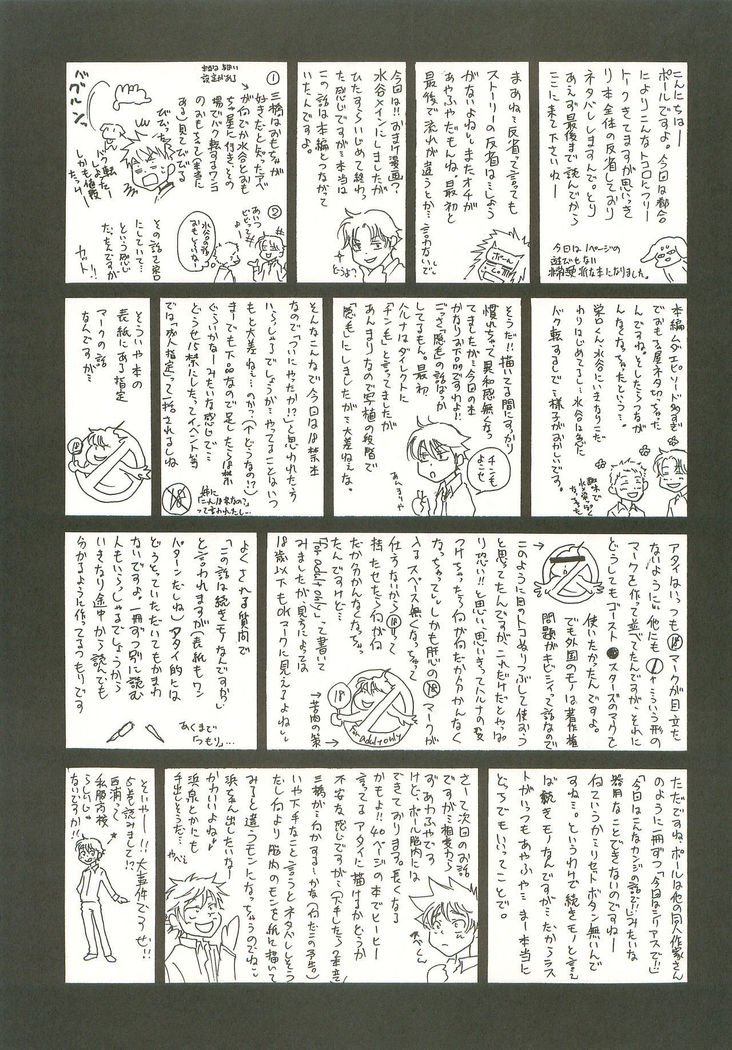 こんにちはー
ポールですよ。今回は都合
によりこんなトコロにフリー
トークきてますが思いっき
り本全体の反省しており
ネタバレしますんで。とり
あえず最後まで読んでから
ここに来て下さいねー
今日は1ページの
遊びもない
な本になりました。
まあね…反省って言っても
ストーリーの反省は…しょう
がないよねし。またオチが
あやふやだもんね。最初と
最後で流れが違うとか…言わないで。
ポール
今回は!!おまけ漫画?
水谷メインにしましたが
ひたすらいじめて終わっ
た感じですが…本当は
この話は本編とつながって
いたんですよ。
どうよ?
①
三橋はおもちゃが
好きだと知った阿部
が何でか水谷とおも
ちゃ屋に行き、その
場でバク転するワンコ
のおもちゃで(本当に
ある)見てびびる
バク転
しよったー
しかも値段
たっけー
②
水谷の話
おもしれーな
その話で栄口
にしていて…
という感じ
だったんですが
カット!!
本編ムダなエピソード多すぎ
でおもちゃ屋ネタ切っちゃった
んですね。そしたらつながん
なくなっちゃったという…。
栄口くん、水谷にいきなりこだ
わりはじめてるし…水谷は急に
バク転するしで…様子がおかしいです。
そうだ!!描いてる間にすっかり
慣れちゃって異和感無くなっ
てましたが…今回の本
かなりお下品ですわよ!!
ごっさ「陰毛」の話ばっか
してるもん。最初
ハルナはダイレクトに
「チン毛」と言ってましたが
あんまりなので写植の段階で
「陰毛」にしましたが…大差ねぇな。
チン毛
よこせ
あんまりや
そんなこんなで、今回は18禁本
なので「ついにやったか!?」と思われたそう
いらっしゃるでしょうが…やってることはいつ
もと大差ね…のか?(↑どうなの!?)
ま…でも下品なので足したら18禁
ぐらいかなーみたいな感じで…
どうせ15禁にしたってイベント等
では「成人指定」って一括されるしね
18
姉に
「これ18禁なの?」
って言われたし…
そういや本の
表紙にある指定
マークの話
なんですが…
アタイはいつも⑱マークが目立た
ないように…他にも こういう形の
マークを作って並べてたんですが、それに
どうしてもゴースト●スターズのマークを
使いたかったんですよ。
でも外国のモノは著作権
問題がキビシイって話なので
このように目のトコぬりつぶして使おう
と思ってたんですが…これだけだとやっぱ
り恐い!!と思い、思いきってハルナの髪
つけちゃったら何が何だか分かんなく
なっちゃって…しかも肝心の⑱マークが
入るスペース無くなっちゃって
仕方ないから⑱って
持たせたら何がなん
だか分かんなくなっちゃっ
たんですけど…
「For adult only」って書いて
みましたが見ようによっては
18歳以下もOKマークに見えるよね…。
18
For adult only
→苦肉の策
よくされる質問で
「この話は続きモノなんですか」
と言われますが(表紙もワン
パターンだしね)アタイ的には
どうとっていただいてもかまわ
ないです。一冊ずつ別に読む
人もいらっしゃるでしょうから
いきなり途中から読んでも
分かるように作ってるつもりです
あくまで
「つもり」…
ただですね、ポールは他の同人作家さん
のように一冊ずつ「今回はシリアスで!!」
「今回はこんなカンジの話で!!」みたいな
器用なことできないのですね…
何ていうか…リセットボタン無いんで
すね…。というわけで続きモノと言え
ば続きモノなんですが…だからラス
トがいつもあやふや…まー本当に
どっちでもいいってことで。
さーて次回のお話
ですが…相変わら
ずあやふやです
けど、ポール脳内には
できております。長くなる
かもよ!!40ページの本でヒーヒー
言ってるアタイに描けるかどうか
不安な感じですが…(下手したら2本立て)
三橋が…何かする…かな(何だこの予告。)
いや下手なこと言うとネタバレしそう
だし何より脳内のモンを紙に描いて
みると違うモンになっちゃうのでね…
浜ちゃん出したいなー
かわいいよね♪
浜泉とかにも
手出しそうだ…やべ…
そいやー!!
5巻読みました!?
西浦って
私服高校
らしいじゃ
ないですか!!
大事件でっせ!!